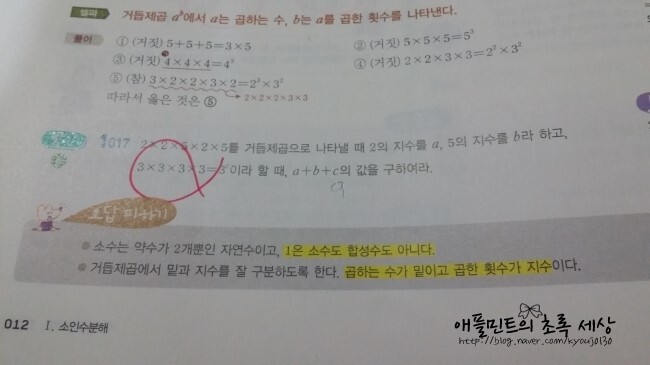 결과 거듭제곱 aᵇ에서 a는 곱하는 수, b는 a를 곱한 횟수를 나타낸다.
풀이 ① (거짓) 5+5+5=3×5 ② (거짓) 5×5×5=5³
③ (거짓) 4×4×4=4³ ④ (거짓) 2×2×3×3=2²×3²
⑤ (참) 3×2×2×3×2=2³×3²
따라서 옳은 것은 ⑤ → 2×2×2×3×3
1017 2×2×5×2×5를 거듭제곱으로 나타낼 때 2의 지수를 a, 5의 지수를 b라 하고,
3×3×3×3=3ᶜ이라 할 때, a+b+c의 값을 구하여라.
오답 피하기
소수는 약수가 2개뿐인 자연수이고, 1은 소수도 합성수도 아니다.
거듭제곱에서 밑과 지수를 잘 구분하도록 한다. 곱하는 수가 밑이고 곱한 횟수가 지수이다.
012 Ⅰ. 소인수분해
애플민트의 초록 세상
http://blog.naver.com/kyouj0130